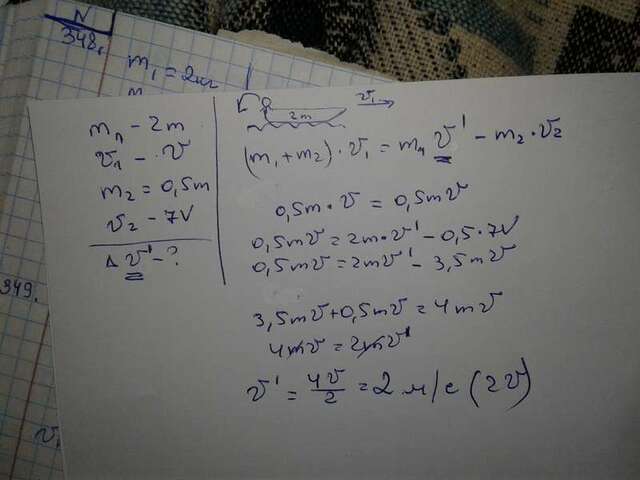 N
348.
m₁ = 2кг
m
349.
m₁ - 2m
v₁ - v
m₂ = 0,5m
v₂ - 7V
Δ v' - ?
v₁
2m
(m₁ + m₂) · v₁ = m₁ v' - m₂ · v₂
0,5m · v = 0,5mv
0,5mv = 2m · v' - 0,5 · 7V
0,5mv = 2mv' - 3,5mv
3,5mv + 0,5mv = 4mv
4mv = 2mv'
v' = 4v/2 = 2 м/с (2v)